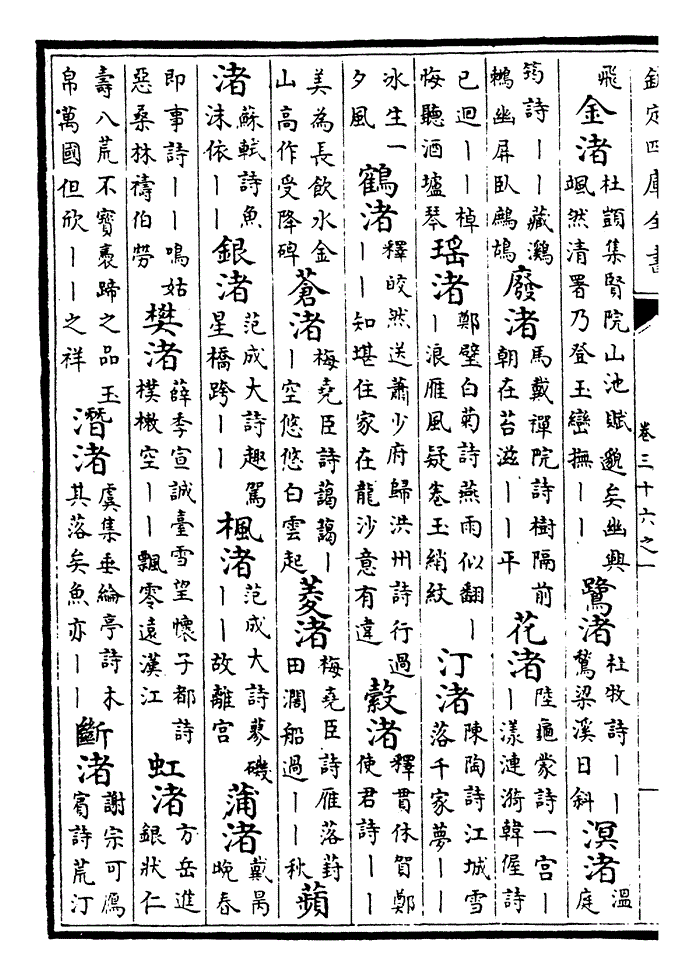 欽定四庫全書 卷三十六之一
飛 金渚 杜顗集賢院山池賦邈矣幽興颯然清署乃登玉巒撫丨丨 鷺渚 杜牧詩丨丨鶩梁溪日斜 溟渚 溫庭
筠詩丨丨藏鸂鶒幽屏臥鷓鴣 廢渚 馬戴禪院詩樹隔前朝在苔滋丨丨平 花渚 陸龜蒙詩一宫丨丨漾漣漪韓偓詩
已迴丨丨棹悔聽酒壚琴 瑶渚 鄭璧白菊詩燕雨似翻丨丨浪雁風疑卷玉綃紋 汀渚 陳陶詩江城雪落千家夢丨丨
冰生一夕風 鶴渚 釋皎然送蕭少府歸洪州詩行過丨丨知堪住家在龍沙意有違 縠渚 釋貫休賀鄭使君詩丨丨
美為長飲水金山高作受降碑 蒼渚 梅堯臣詩藹藹丨丨空悠悠白雲起 菱渚 梅堯臣詩雁落葑田濶船過丨丨秋 蘋
渚 蘇軾詩魚沫依丨丨 銀渚 范成大詩趣駕星橋跨丨丨 楓渚 范成大詩蓼磯丨丨故離宫 蒲渚 戴昺晚春
即事詩丨丨鳴姑惡桑林禱伯勞 樊渚 薛季宣誠臺雪望懷子都詩樸樕空丨丨飄零遠漢江 虹渚 方岳進銀狀仁
壽八荒不寳褭蹄之品玉帛萬國但欣丨丨之祥 潛渚 虞集垂綸亭詩木其落矣魚亦丨丨 斷渚 謝宗可鴈賓詩荒汀